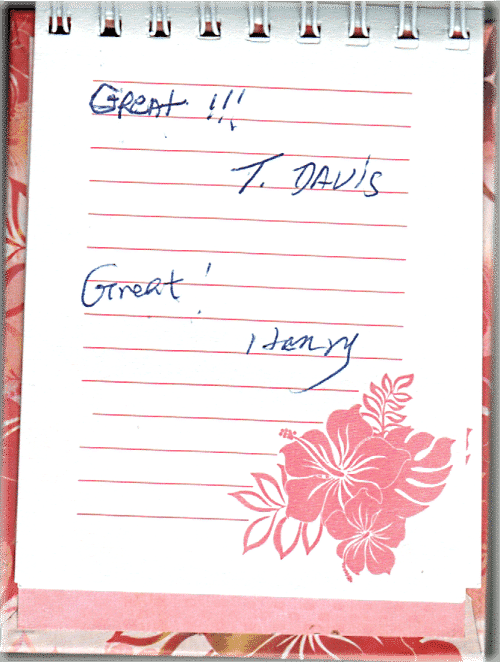 GReat !!!
T. DAVIS
Great!
Henry